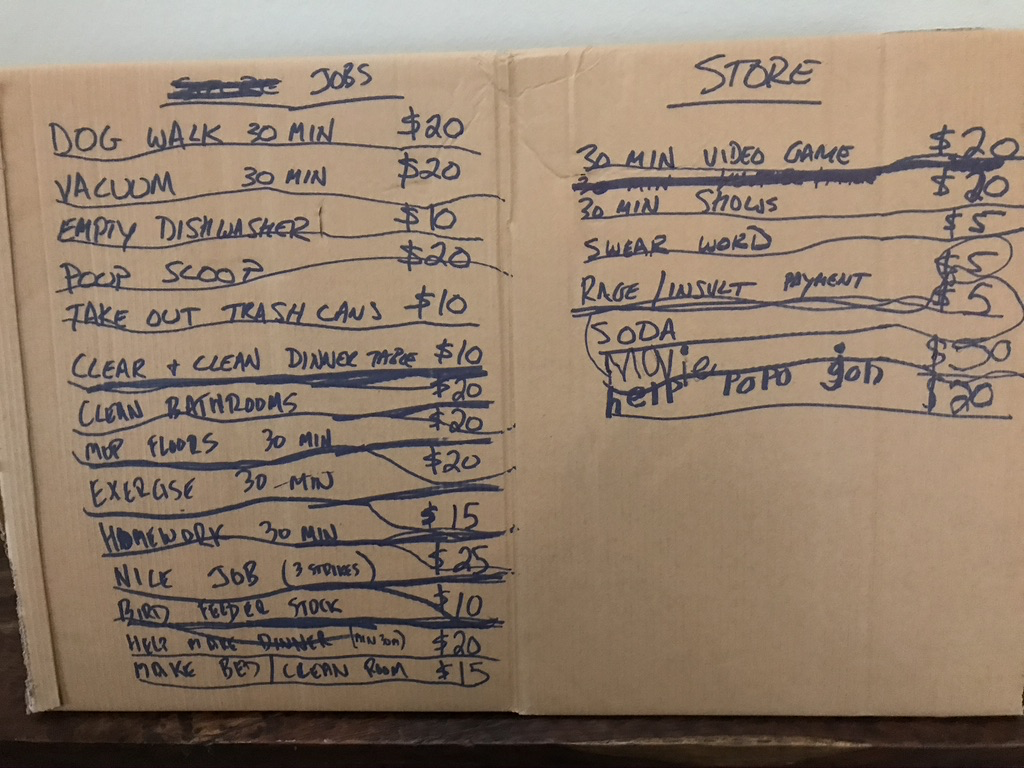 JOBS
DOG WALK 30 MIN $20
VACUUM 30 MIN $20
EMPTY DISHWASHER $10
POOP SCOOP $20
TAKE OUT TRASH CANS $10
CLEAR + CLEAN DINNER TABLE $10
CLEAN BATHROOMS $20
MOP FLOORS 30 MIN $20
EXERCISE 30 MIN $20
HOMEWORK 30 MIN $15
NICE JOB (3 STRIKES) $25
BIRD FEEDER STOCK $10
HELP MAKE DINNER (MIN 30M) $20
MAKE BED | CLEAN ROOM $15
STORE
30 MIN VIDEO GAME $20
30 MIN SHOWS $20
SWEAR WORD $5
RAGE/INSULT PAYMENT $5
SODA $5
Movie
help popo gon $20